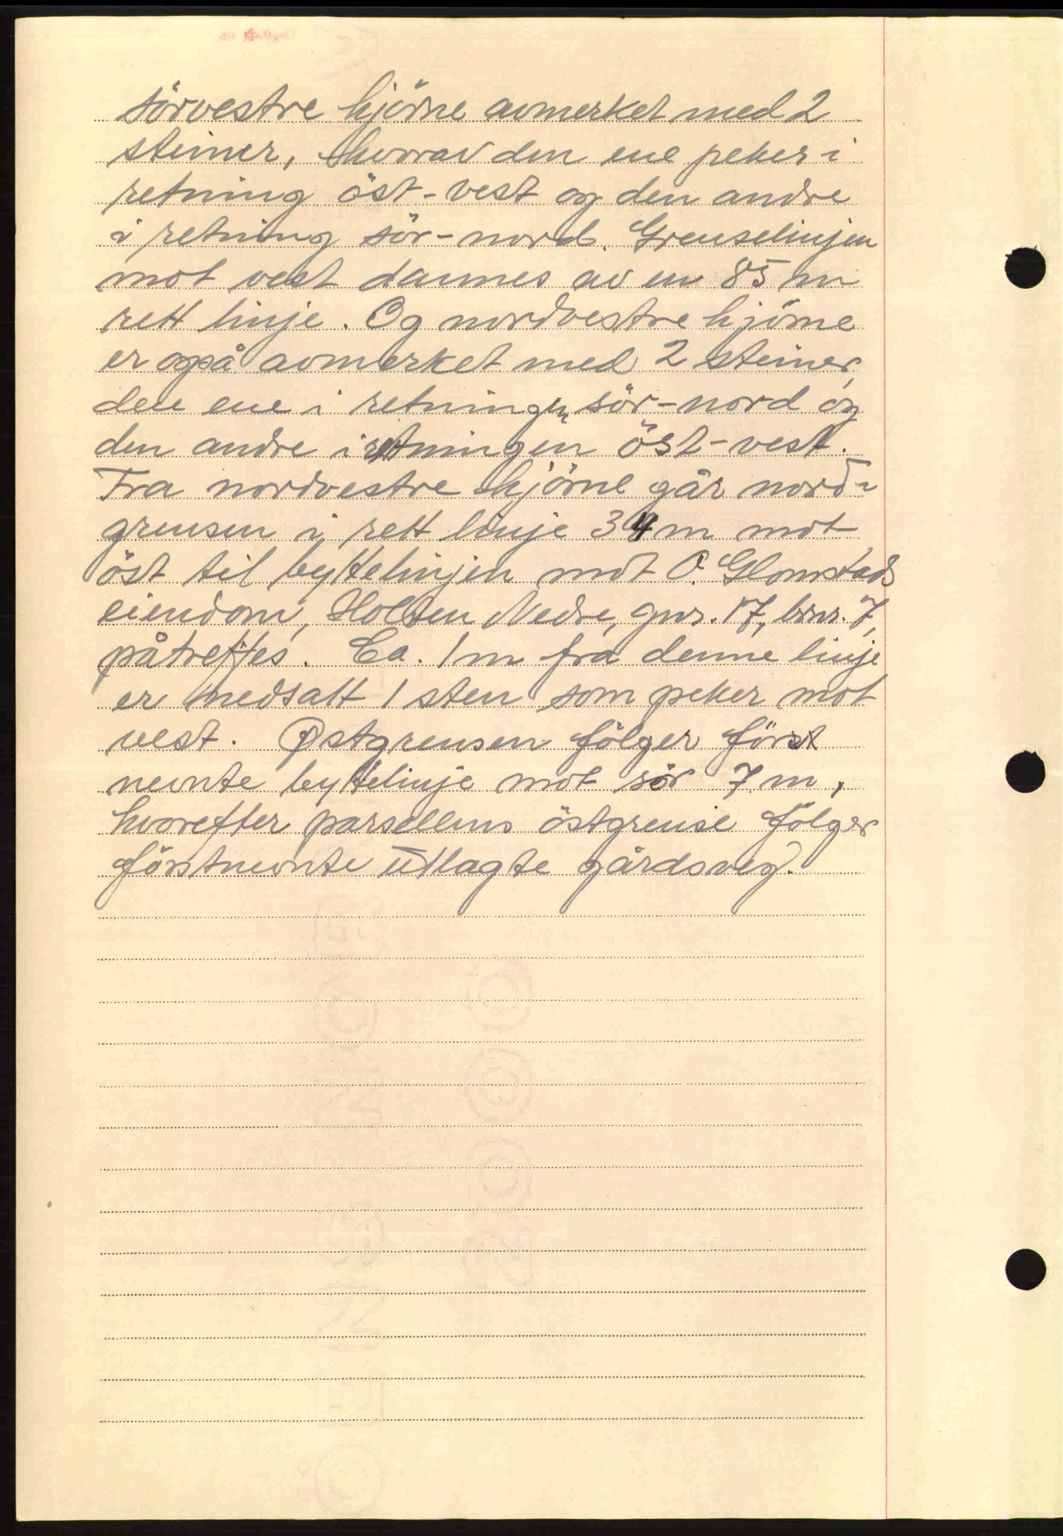 sörvestre hjörne avmerket med 2
steiner, hvorav den ene peker i
retning öst-vest og den andre
i retning sör-nord. Grenselinjen
mot vest dannes av en 85 m
rett linje. Og nordvestre hjörne
er også avmerket med 2 steiner,
den ene i retningen sör-nord og
den andre i retningen öst-vest.
Fra nordvestre hjörne går nord-
grensen i rett linje 34 m mot
öst til byttelinjen mot O. Glomstads
eiendom, Holten Nedre, gnr. 17, brnr. 7,
påtreffes. Ca. 1 m fra denne linje
er nedsatt 1 sten som peker mot
vest. Østgrensen fölger först
nevnte byttelinje mot sør 7 m,
hvorefter parsellens östgrense fölger
förstnevnte utlagte gårdsveg.